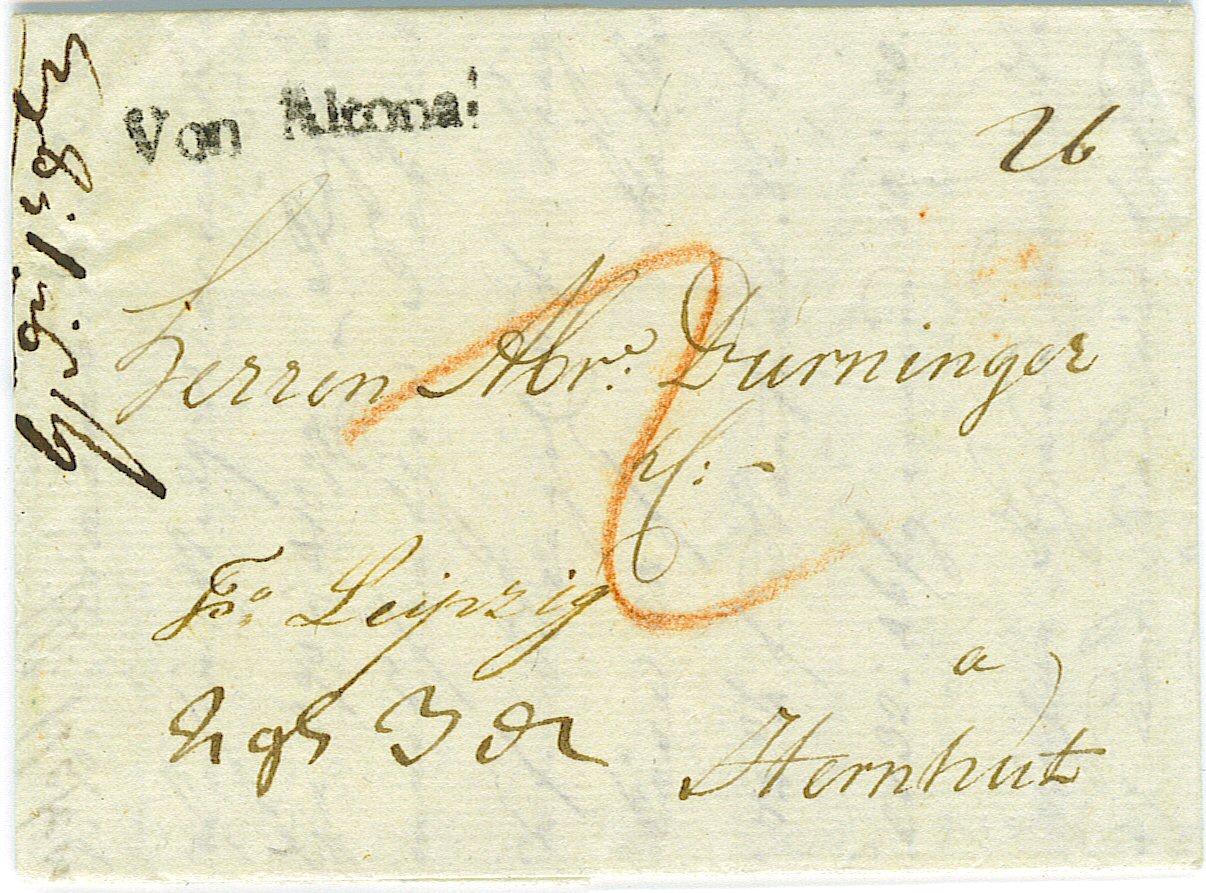 Von Altona!
26
Herren Abr. Dürninger
2
Fo. Leipzig
2 gh 3 d
a
Hernhut